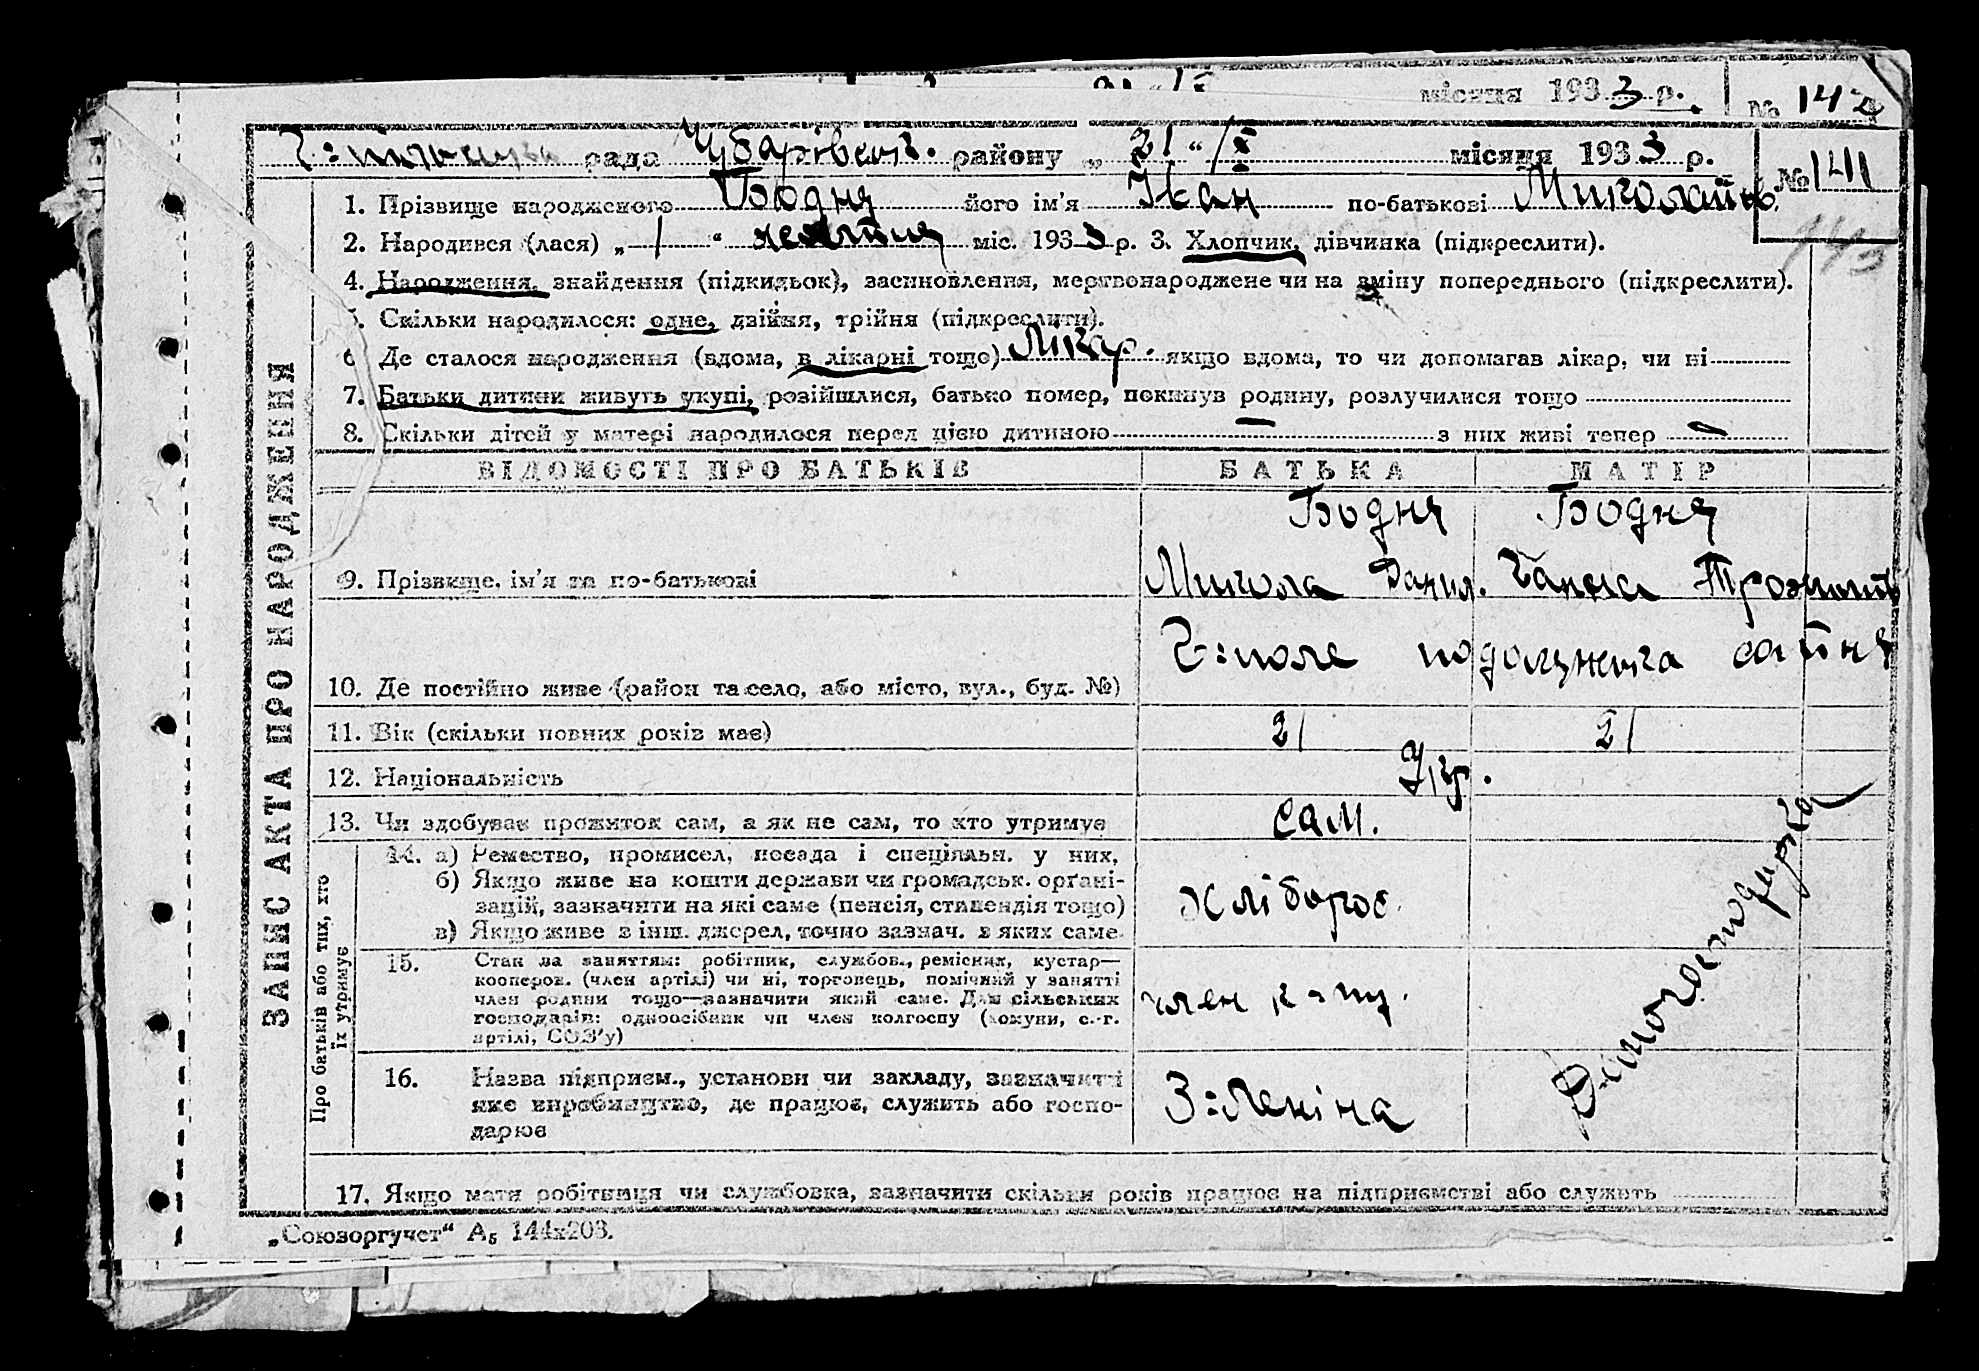 місяця 1933 р. № 142
рада Чубарівськ. району „21“ /X місяця 1933 р.
№ 141
143
1. Прізвище народженого Бодня його ім'я Іван по-батькові Миколайов.
2. Народився (лася) „1“ жовтня міс. 1933 р. 3. Хлопчик, дівчинка (підкреслити).
4. Народження, знайдення (підкидьок), засиновлення, мертвонароджене чи на зміну попереднього (підкреслити).
5. Скільки народилося: одне, двійня, трійня (підкреслити).
6. Де сталося народження (вдома, в лікарні тощо) Лікар. якщо вдома, то чи допомагав лікар, чи ні
7. Батьки дитини живуть укупі, розійшлися, батько помер, покинув родину, розлучилися тощо
8. Скільки дітей у матері народилося перед цією дитиною — з них живі тепер —
ВІДОМОСТІ ПРО БАТЬКІВ БАТЬКА МАТІР
Бодня Бодня
9. Прізвище, ім'я та по-батькові Микола Данил. Ганна
10. Де постійно живе (район та село, або місто, вул., буд. №) Г=поле
11. Вік (скільки повних років має) 21 21
12. Національність Укр.
13. Чи здобуває прожиток сам, а як не сам, то хто утримує сам.
14. а) Ремество, промисел, посада і спеціяльн. у них,
б) Якщо живе на кошти держави чи громадськ. орґані-
зацій, зазначити на які саме (пенсія, стипендія тощо)
в) Якщо живе з інш. джерел, точно зазнач. з яких саме
хлібороб.
15. Стан за заняттям: робітник, службов., ремісник, кустар—
кооперов. (член артілі) чи ні, торговець, помічний у занятті
член родини тощо—зазначити який саме. Для сільських
господарів: одноосібник чи член колгоспу (комуни, с.-г.
артілі, СОЗ'у)
член к-пу.
16. Назва підприєм., установи чи закладу, зазначити
яке виробництво, де працює, служить або госпо-
дарює
З=Леніна
Домогосподирка
17. Якщо мати робітниця чи службовка, зазначити скільки років працює на підприємстві або служить
„Союзоргучет“ А₅ 144х203.
ЗАПИС АКТА ПРО НАРОДЖЕННЯ
Про батьків або тих, хто
їх утримує